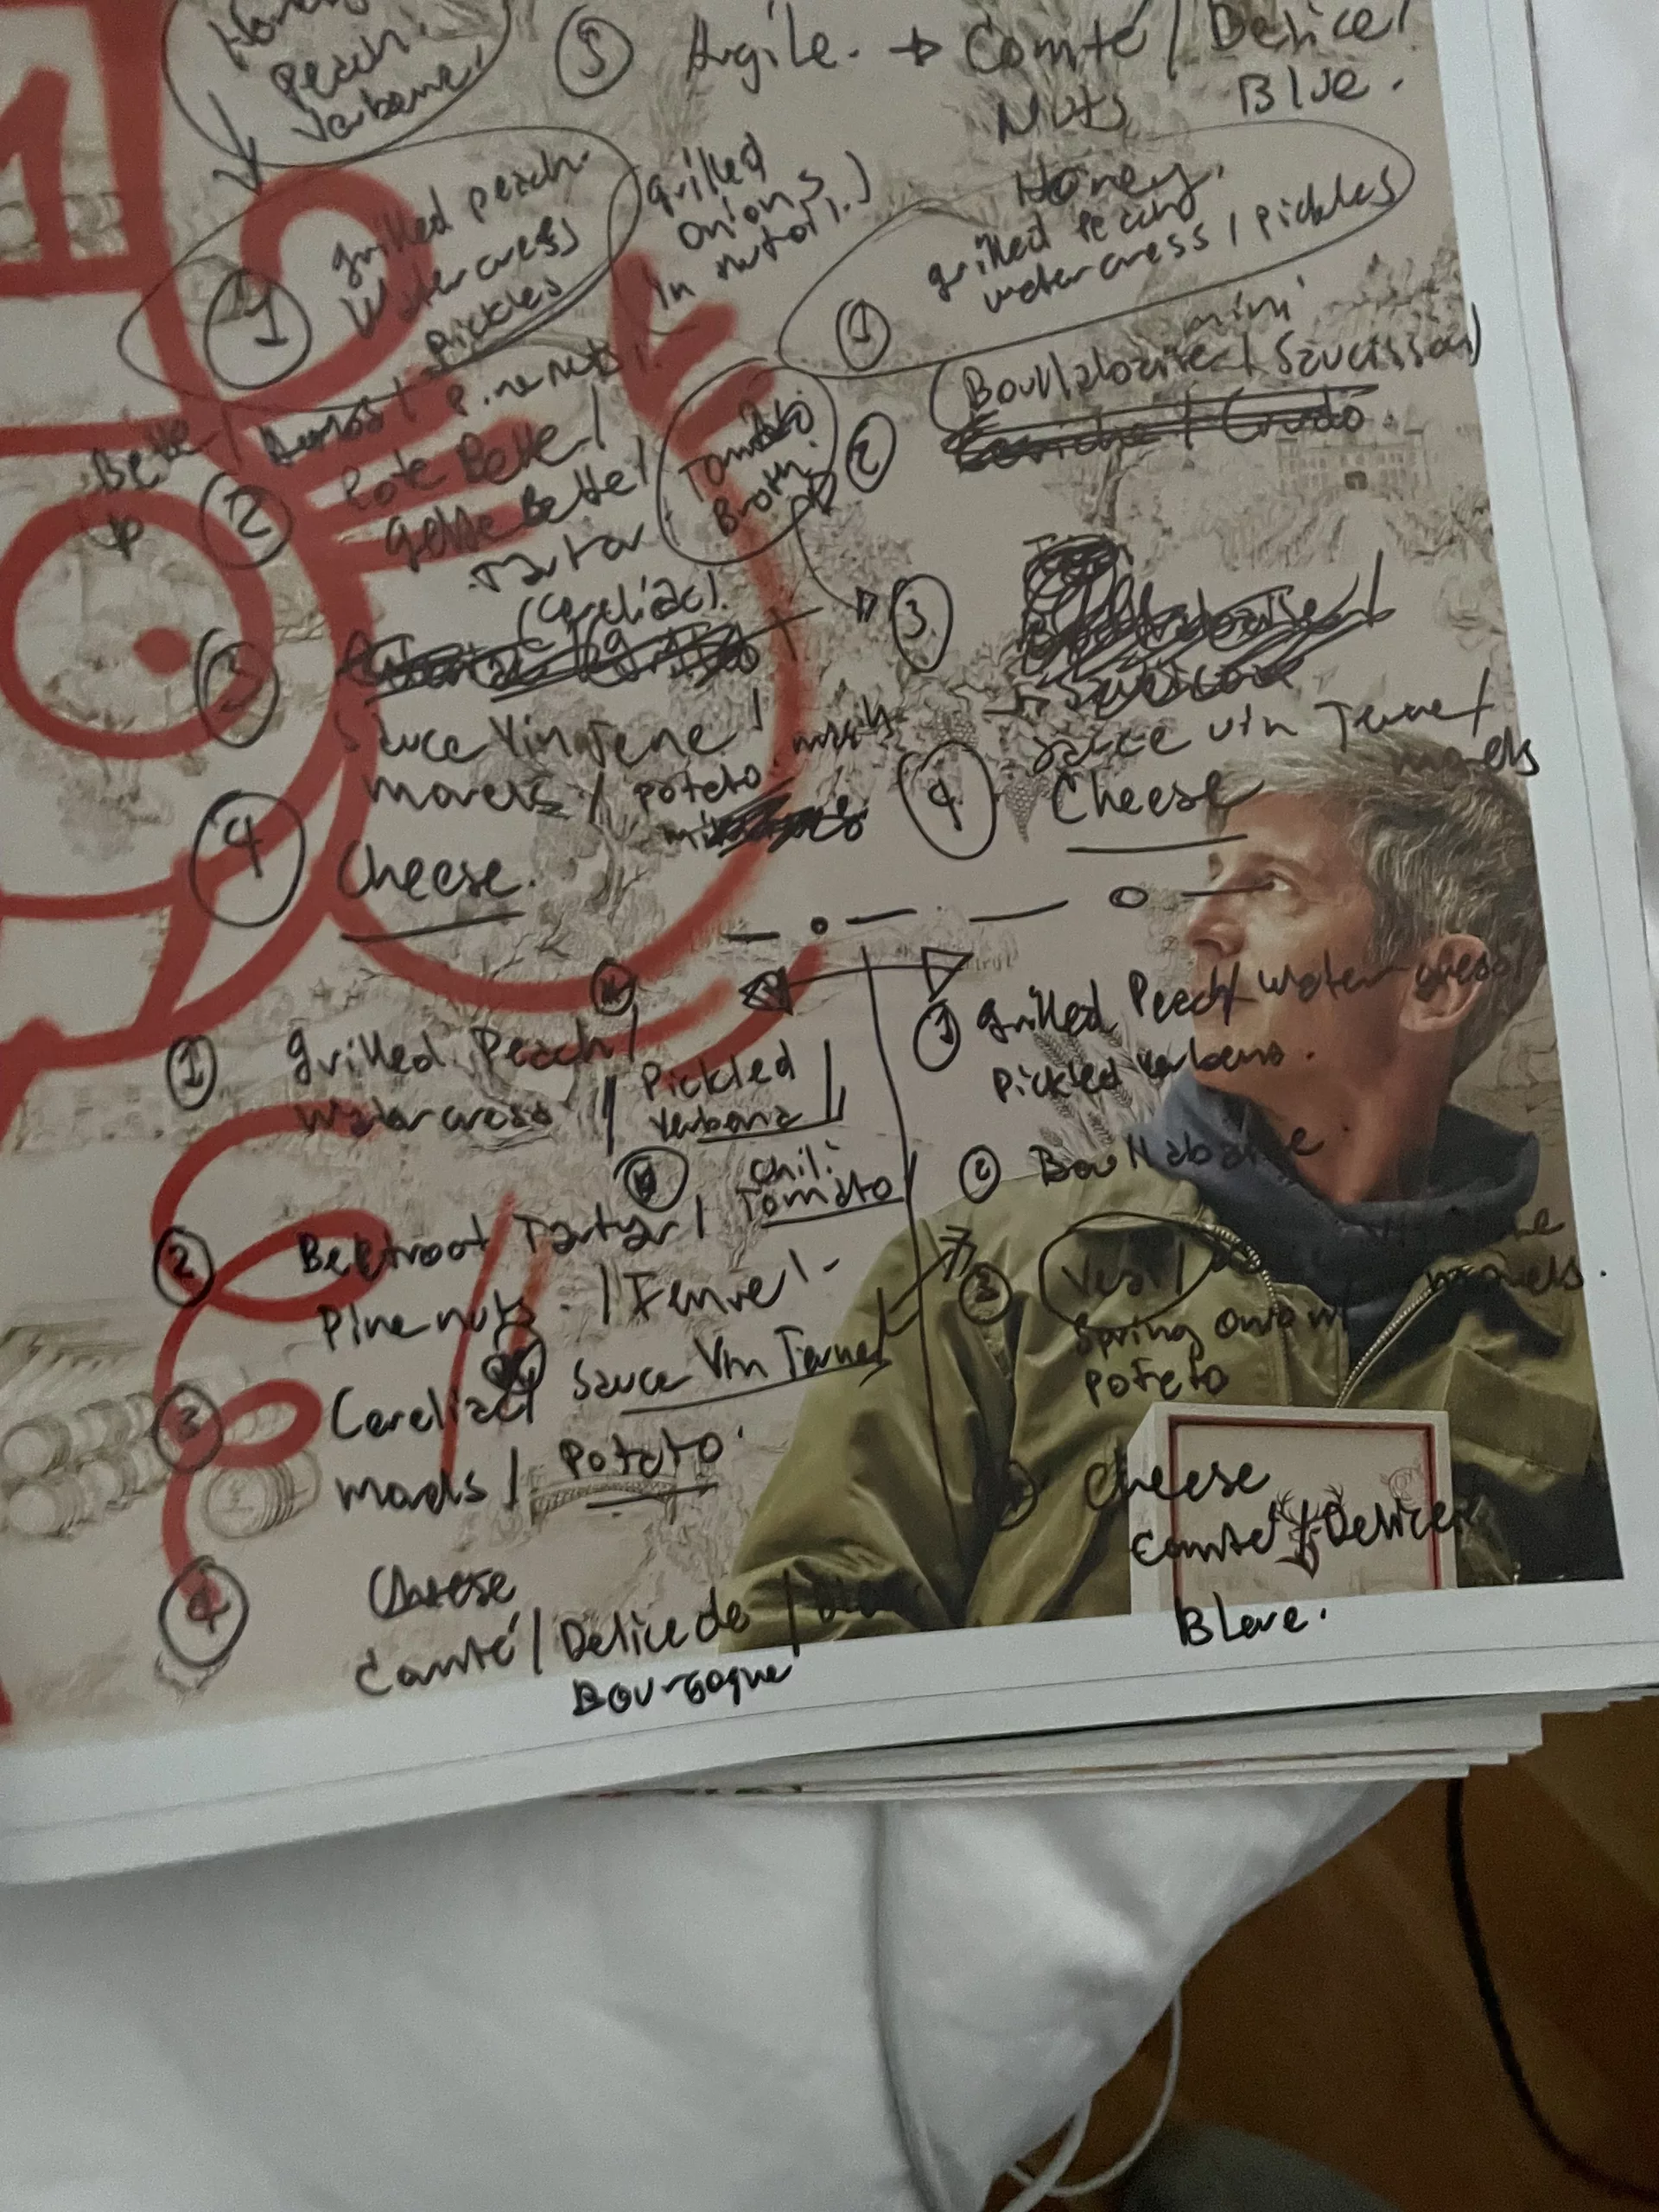 Peach.
Verbene!
5 Argile. → Comté / Delice /
Nuts Blue.
Honey.
1 grilled peach
Watercress
pickles
grilled
onions
in
1 grilled Peach
watercress / pickles
Bette / / pinenuts /
2 Rote Bette /
Gelbe Bette /
Tartar
(Cereliac).
Tomato
Broth.
mini
2 Bouillabaise / Saucisson
Ceviche / Crudo
3
Sauce Vin Jaune /
morels / poteto mash
4 Cheese.
3
Sauce vin Jaune /
morels
4 Cheese
1 grilled Peach /
Watercress / Pickled
Verbena
2 Beetroot Tartar / Chili
Tomato /
Pinenuts. / Fennel.
3 Cereliac / Sauce Vin Jaune
Morels / Potato.
4 Cheese
Comté / Delice de /
Bourgogne
1 grilled Peach / Watercress /
Pickled Verbena.
2 Bouillabaise
3 Veal /
morels.
Spring onion /
poteto
4 Cheese
Comté / Delice
Bleue.